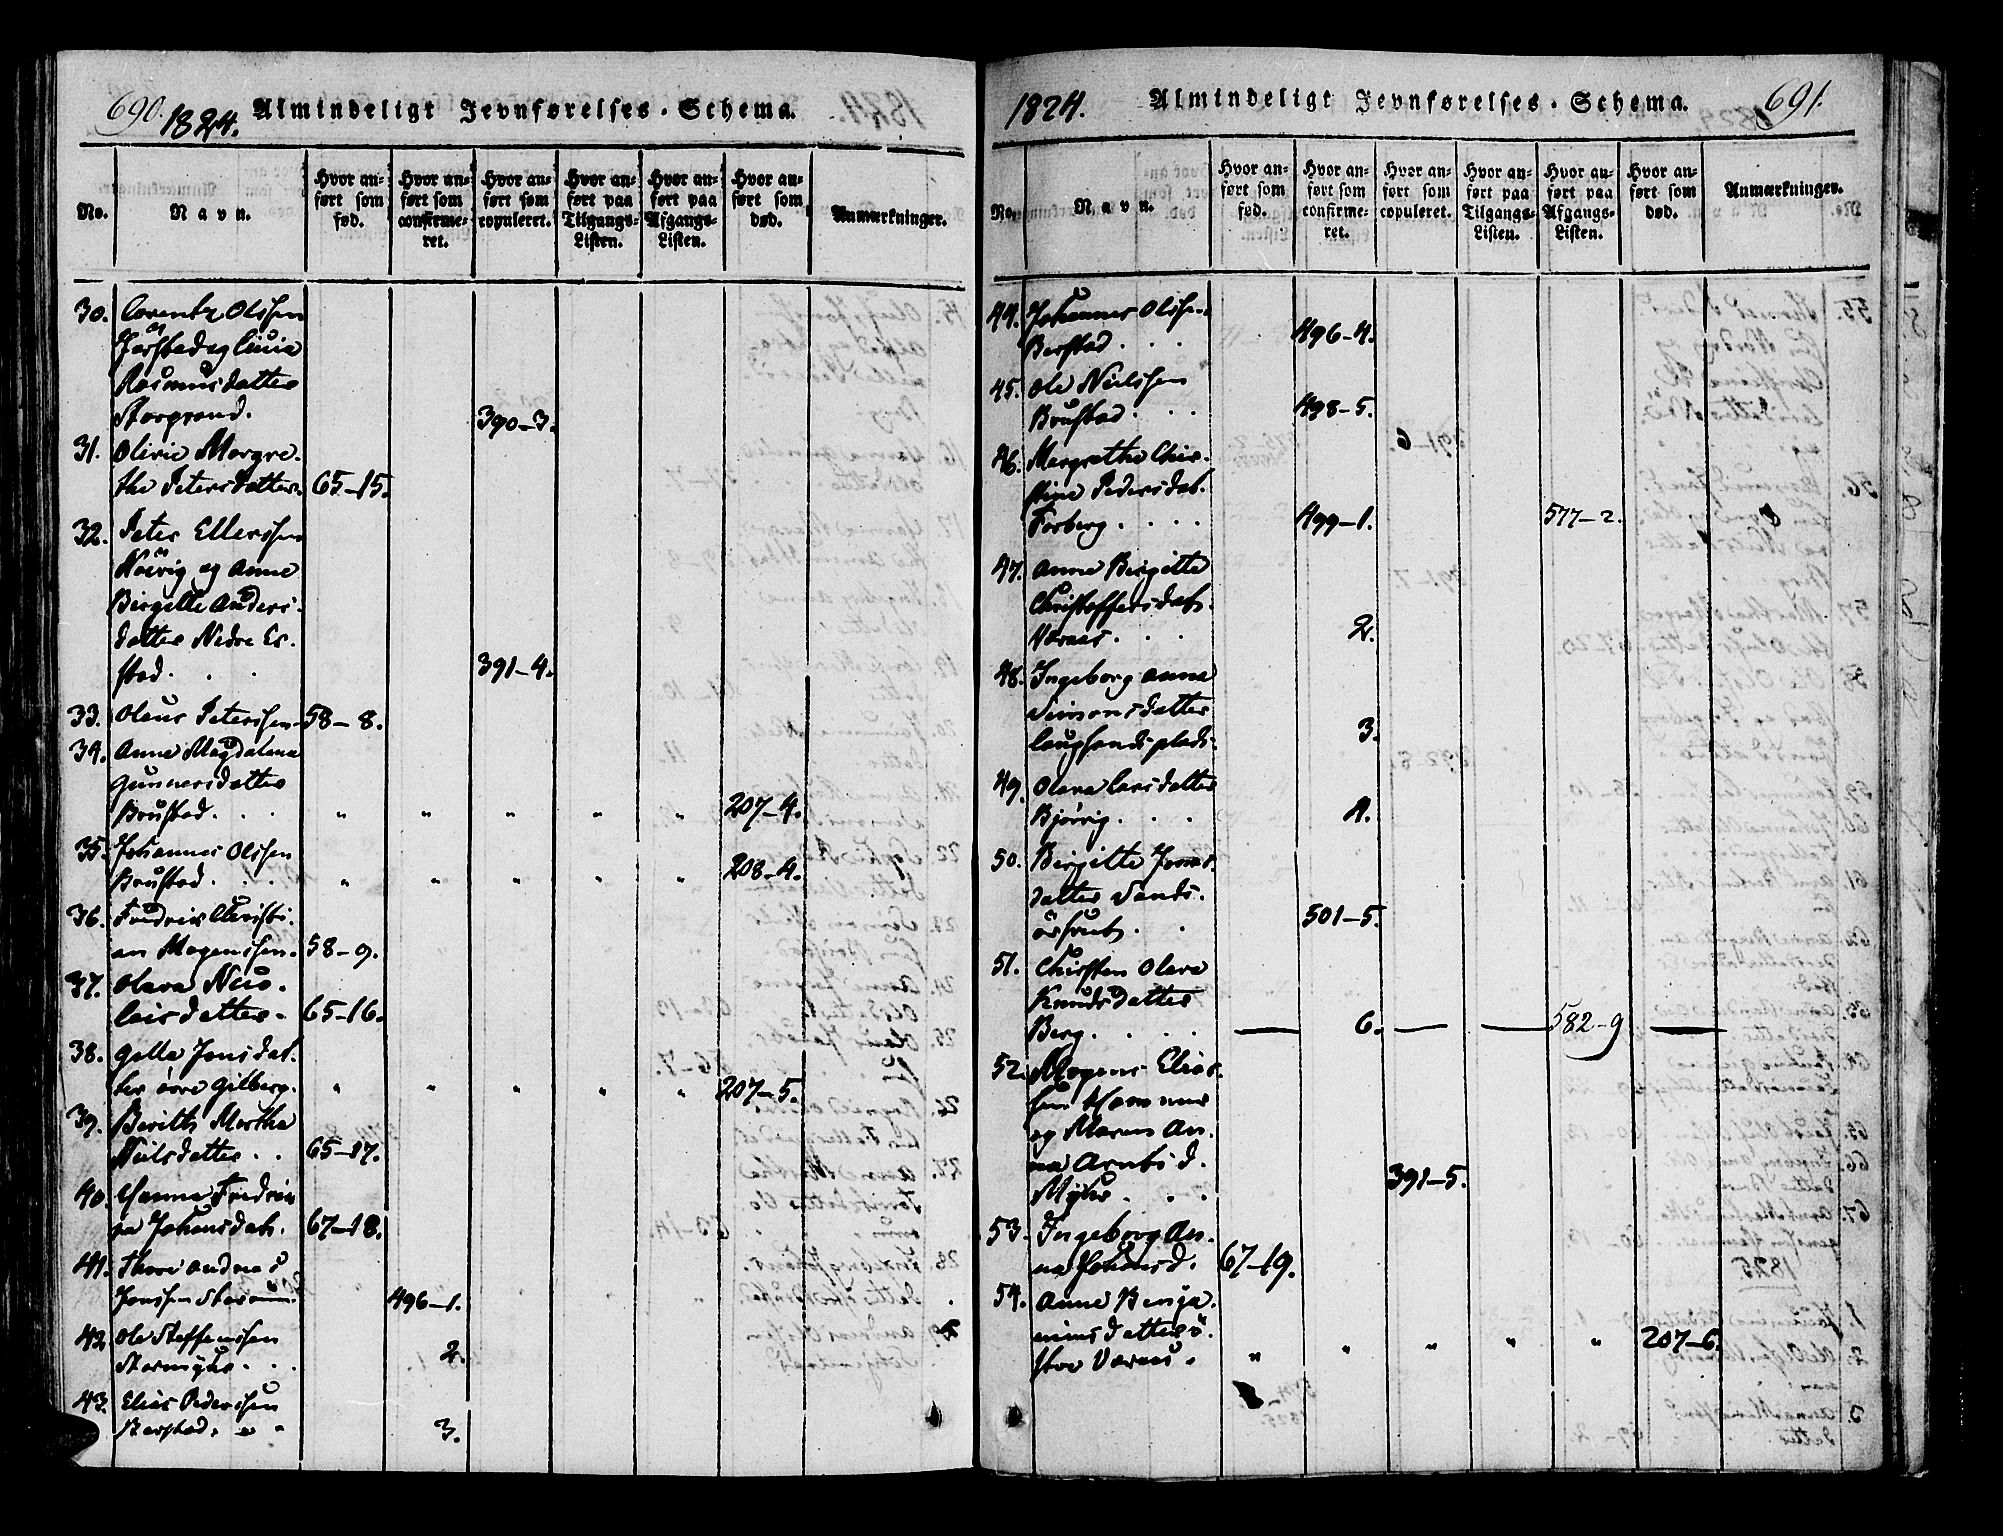 690. 1824. Almindeligt Jevnførelses-Schema.
No. Navn. Hvor anført som fød. Hvor anført som confirmeret. Hvor anført som copuleret. Hvor anført paa Tilgangs-Listen. Hvor anført paa Afgangs-Listen. Hvor anført som død. Anmærkninger.
30. Lorentz Olssen
Jørstad og Livia
Rasmusdatter
390-3.
31. Olivie Margre-
the Petersdatter 65-15.
32. Peter Ellerssen
og Anne
Birgitte Anders-
datter Nedre Er-
stad. . . 391-4.
33. Olaus Peterssen 58-8.
34. Anne Magdalena
Gunnersdatter
Brustad. . . " " " " " 207-4.
35. Johannes Olssen
Brustad. . . " " " " " 208-4.
36. Fredrik Christi-
an Mogenssen. 58-9.
37. Olava Nico-
laisdatter. 65-16.
38. Gølla Jonsdat-
ter øvre Gilberg. " " " " " 207-5.
39. Berith Martha
Nielsdatter. . 65-17.
40. Hanna Fredrik-
na Johansdatr. 67-18.
41. Thore Andreas
Jonssen 496-1.
42. Ole Steffenssen
Stormyhr. . . 2.
43. Elias Pederssen
Berstad. " " 3.
1824. Almindeligt Jevnførelses-Schema. 691.
No. Navn. Hvor anført som fød. Hvor anført som confirmeret. Hvor anført som copuleret. Hvor anført paa Tilgangs-Listen. Hvor anført paa Afgangs-Listen. Hvor anført som død. Anmærkninger.
44. Johannes Olssen
Berstad. . . 496-4.
45. Ole Nielssen
Brustad. . . 498-5.
46. Margrethe Chri-
stine Pedersdat.
Forberg. . . . 499-1. 577-2.
47. Anne Birgitte
Christoffersdatr.
. . . 2.
48. Ingeborg Anna
Simonsdatter
3.
49. Olava Larsdatter
Bjørvig. . . 4.
50. Birgitte Jons-
datter Sands-
. . 501-5.
51. Christen Olava
Knudsdatter
Berg. . . . — 6. — — 582-9 —
52. Mogens Elias-
sen Hammer
og Maren An-
na Arntsd.
Myhr. . . 391-5.
53. Ingeborg An-
na Johansd. 67-19.
54. Anne Benja-
minsdatter ö-
stre " " " " " 207-6.